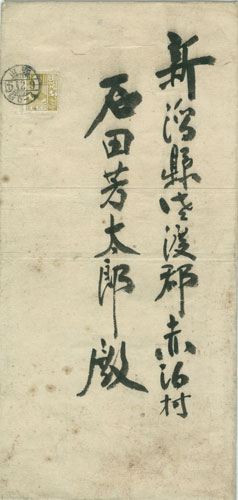 新潟縣佐渡郡赤泊村
石田芳太郎殿